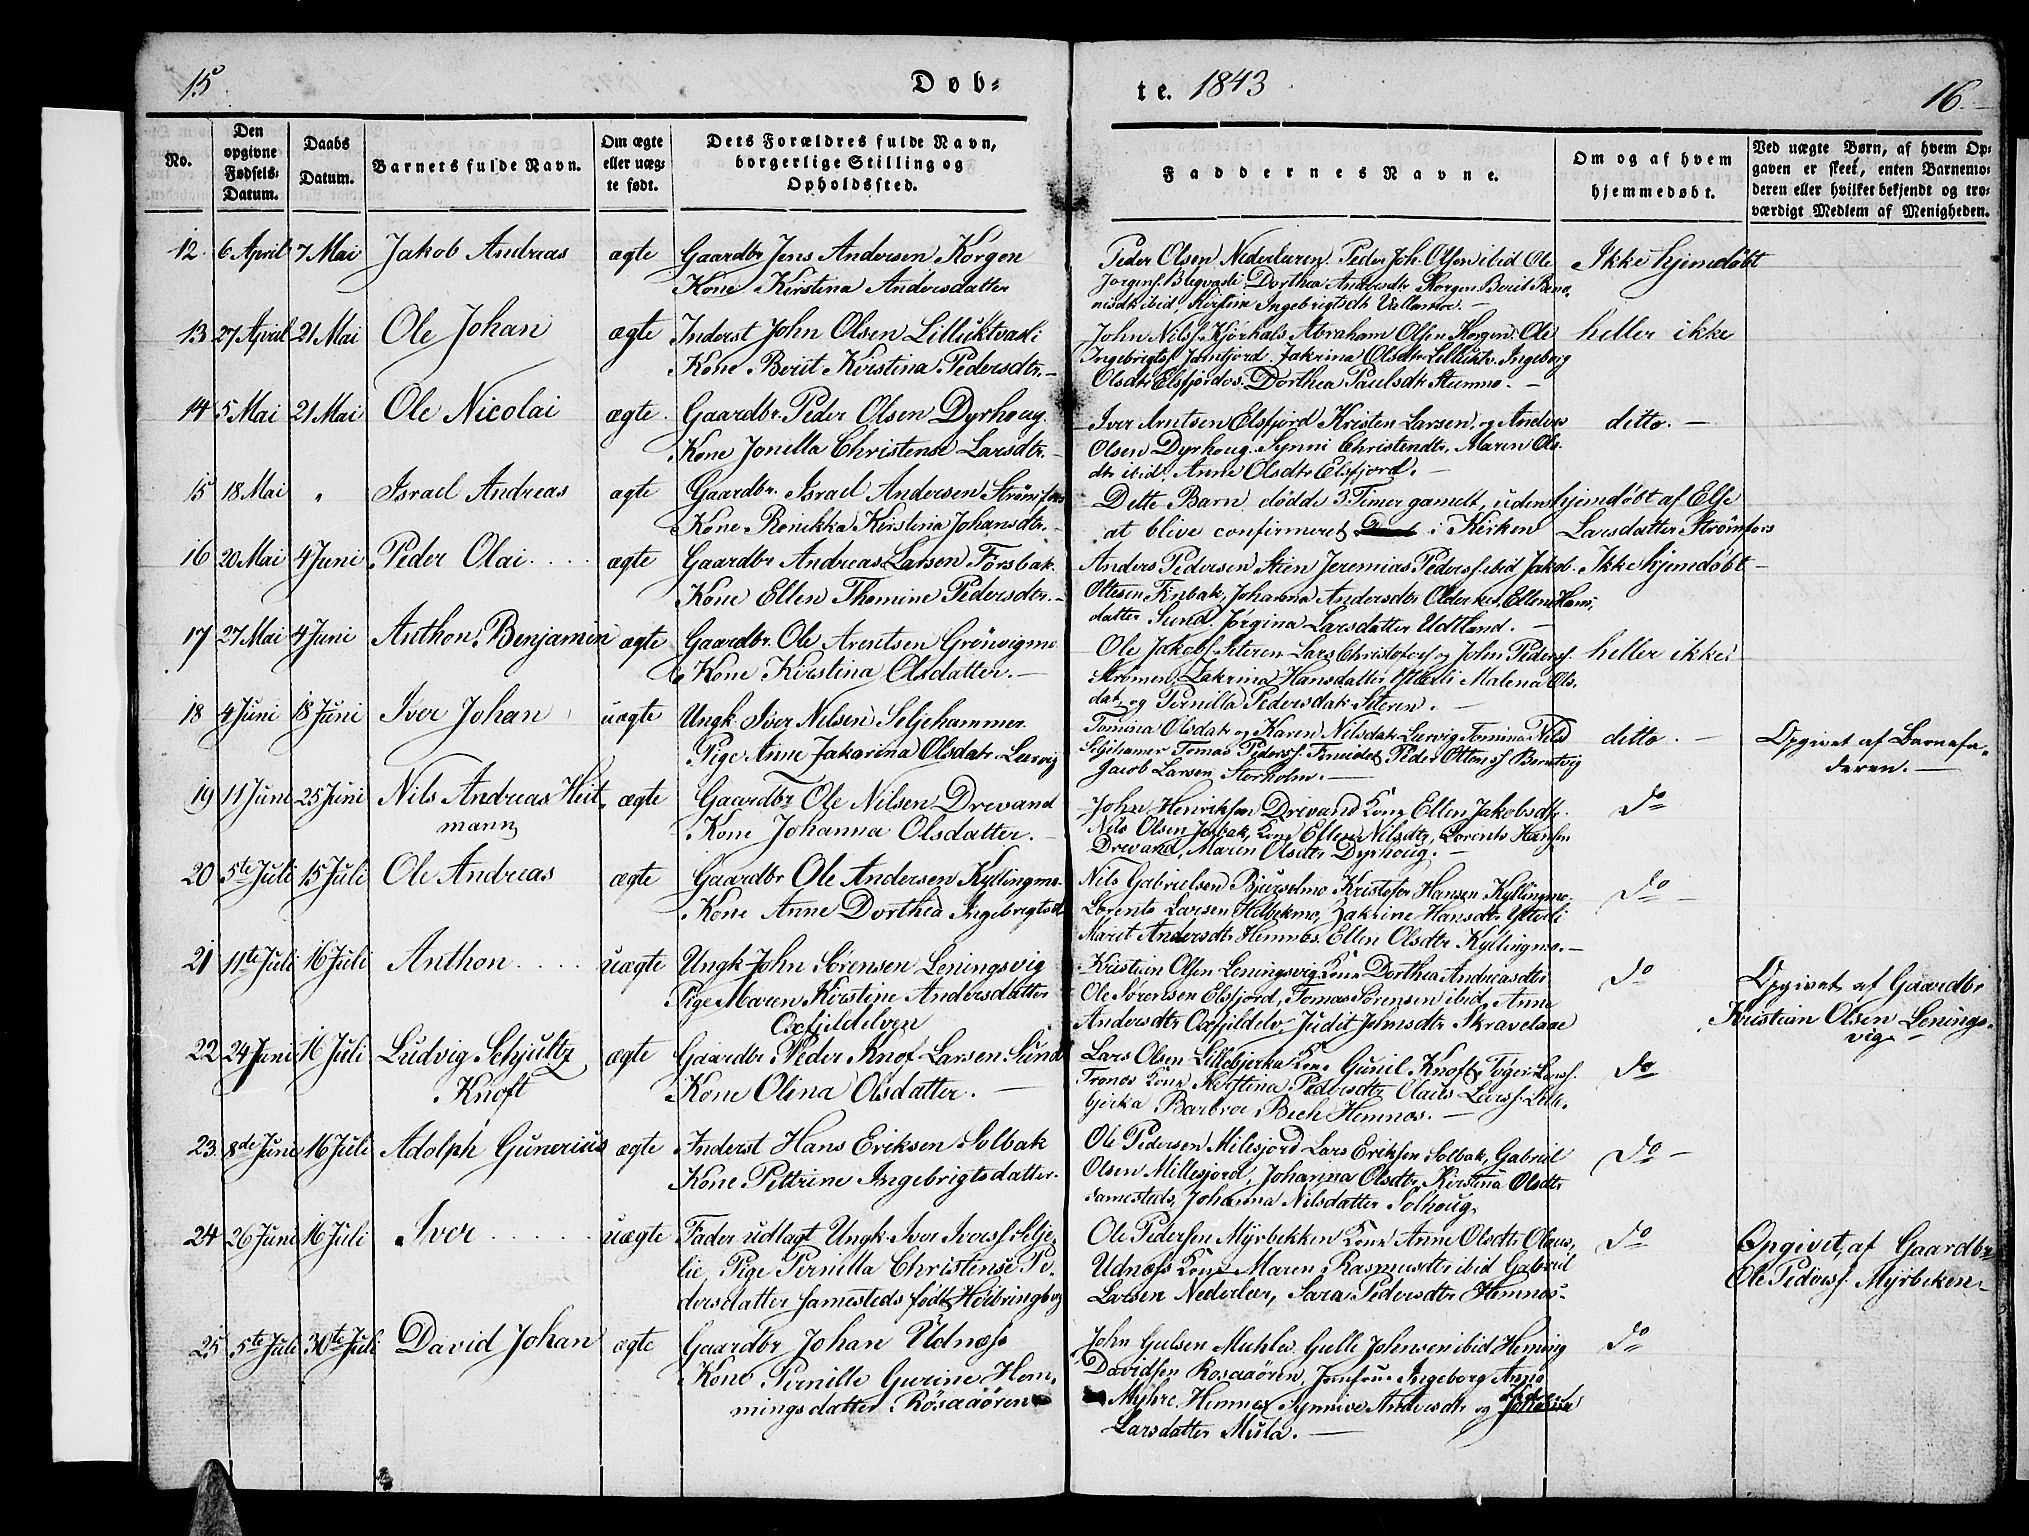 15
Døb-
te. 1843
16.
No.
Den opgivne Fødsels-Datum.
Daabs Datum.
Barnets fulde Navn.
Om ægte eller uæg-te født.
Dets Forældres fulde Navn, borgerlige Stilling og Opholdssted.
Faddernes Navne.
Om og af hvem hjemmedøbt.
Ved uægte Børn, af hvem Op-gaven er skeet, enten Barnemo-deren eller hvilket bekjendt og tro-værdigt Medlem af Menigheden.
12. 6 April 7 Mai Jakob Andreas ægte Gaardbr Jens Andersen Korgen
Kone Kirstina Andersdatter
Peder Olsen Nederleren Peder Joh. Olsen ibid Ole
Dorthea Andersdtr Korgen Berit
ibid, Kirstine Ingebrigtsdtr
Ikke hjemdøbt
13 27 April 21 Mai Ole Johan ægte Inderst John Olsen
Kone Berit Kirstina Pedersdtr.
John Nilss. Abraham Olsen Korgen, Ole
Ingebrigtss. Jamtjord. Jakrina Olsdtr Ingeborg
Olsdtr Elsfjordos. Dorthea Paulsdtr Stenmo.
heller ikke
14 5 Mai 21 Mai Ole Nicolai ægte Gaardbr. Peder Olsen Dyrhoug.
Kone Jonella Christense Larsdtr.
Iver Arntsen Elsfjord Kristen Larsen, og Anders
Olsen Dyrhoug. Synni Christensdtr, Maren Ols-
dtr ibid. Anne Olsdtr Elsfjord.
ditto.
15 18 Mai " Israel Andreas ægte Gaardbr. Israel Andersen Strømfors
Kone Renikka Kirstina Johansdtr.
Dette Barn dødde 3 Timer gamelt, uden
at blive confirmeret i Kirken
hjemdøbt af Else
Larsdatter Strømfors
16 20 Mai 4 Juni Peder Olai ægte Gaardbr Andreas Larsen Forsbak.
Kone Ellen Thomine Pedersdtr.
Anders Pedersen Stien Jeremias Pederss. ibid Jakob
Ottesen Finbak, Johanna Andersdtr Ellen Hans-
datter Sund, Jørgina Larsdatter Udtland.
Ikke hjemdøbt
17 27 Mai 4 Juni Anthon Benjamin ægte Gaardbr. Ole Arentsen Grønvigmo
Kone Kirstina Olsdatter.
Ole Jakobs. Lars Christofers. og John Peders.
Strømen, Zakrina Hansdatter Malena Ols-
dat, og Pernilla Pedersdatr
heller ikke
18 4 Juni 18 Juni Iver Johan uægte Ungk. Iver Nilsen Seljehammer
Pige Anne Jakarina Olsdatr Leirvig
Tomina Olsdatr og Karen Nilsdatr Leirvig Tomina Nils
Tomas Pederss. Peder
Jacob Larsen Storholm.
ditto.
Opgivet af Barnefa-
deren.
19 11 Juni 25 Juni Nils Andreas Heit-
mann
ægte Gaardbr Ole Nilsen Drevand
Kone Johanna Olsdatter.
John Henriksen Drevand Kone Ellen Jakobsdtr.
Nils Olsen Kone Ellen Nilsdtr, Lorents Hansen
Drevand, Maren Olsdtr Dyrhoug.
do
20 5te Juli 15 Juli Ole Andreas ægte Gaardbr Ole Andersen Kyllingmo.
Kone Anne Dorthea Ingebrigtsd
Nils Gabrielsen Kristofer Hansen Kyllingmo,
Lorents Larsen Zakrine Hansdtr Ytterli
Marit Andersdtr Hemnes. Ellen Olsdtr Kyllingmo.
do
21 11te Juli 16 Juli Anthon uægte Ungk. John Sørensen Leningsvig
Pige Maren Kirstine Andersdatter
Oxfjeldelven
Kristian Olsen Leningsvig Kone Dorthea Andreasdtr
Ole Sørensen Elsfjord, Tomas Sørensen ibid, Anne
Andersdtr Oxfjeldelv, Judit Johnsdtr
do
Opgivet af Gaardbr
Kristian Olsen Lenings-
vig
22 24 Juni 16 Juli Ludvig Schjultz
Knoft
ægte Gaardbr Peder Knof Larsen Sund
Kone Olina Olsdatter.
Lars Olsen Lillebjerka Kone Gunil Knoft, Toger Larss.
Kone Kirstina Pedersdtr Olaus Larss. Lille-
bjerka Barbroe Bech Hemnes.
do
23 8de Juni 16 Juli Adolph Gunerius ægte Inderst Hans Eriksen Solbak
Kone Pettrine Ingebrigtsdatter.
Ole Pedersen Milesjord Lars Eriksen Solbak, Gabriel
Olsen Millesjord, Johanna Olsdtr, Kirstina Olsdtr
samesteds, Johanna Nilsdatter Solhoug
do
24 26 Juni 16 Juli Iver uægte Fader udlagt Ungk. Iver Iverss. Selje-
lie, Pige Pernilla Christense Pe-
dersdatter samesteds født
Ole Pedersen Myrbekken Kone Anne Olsdtr Olaus,
Udnæss Kone Maren Rasmusdtr ibid Gabriel
Larsen Nederleer, Sara Pedersdtr Hemnes.
do
Opgivet af Gaardbr
Ole Peders. Myrbeken
25 5te Juli 30te Juli David Johan ægte Gaardbr Johan Udnæss
Kone Pernille Gurine Hem-
mingsdatter Røsaaøren
John Gulsen Gulle Johnsen ibid Heming
Davidsen Rosaaøren, Jomfru Ingeborg Anna
Myhre Hemnes, Synnive Andersdtr og
Larsdatter Mula.
do